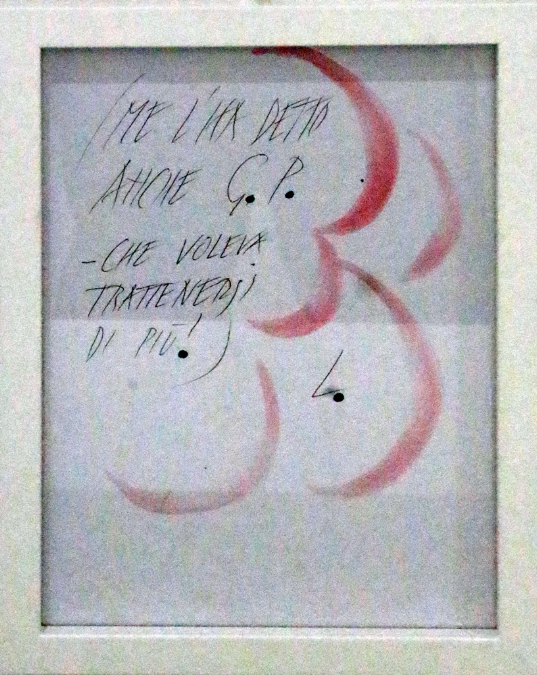 (ME L'HA DETTO
ANCHE G.P.
-CHE VOLEVA
TRATTENERSI
DI PIÙ!)
L.